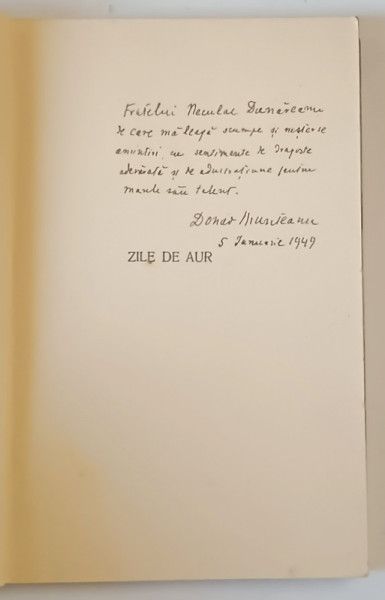 Fratelui Neculae Dunăreanu
de care mă leagă scumpe și neșterse
amintiri, cu sentimente de dragoste
adevărată și de admirațiune pentru
marele său talent.
Donar Munteanu
5 Ianuarie 1949
ZILE DE AUR